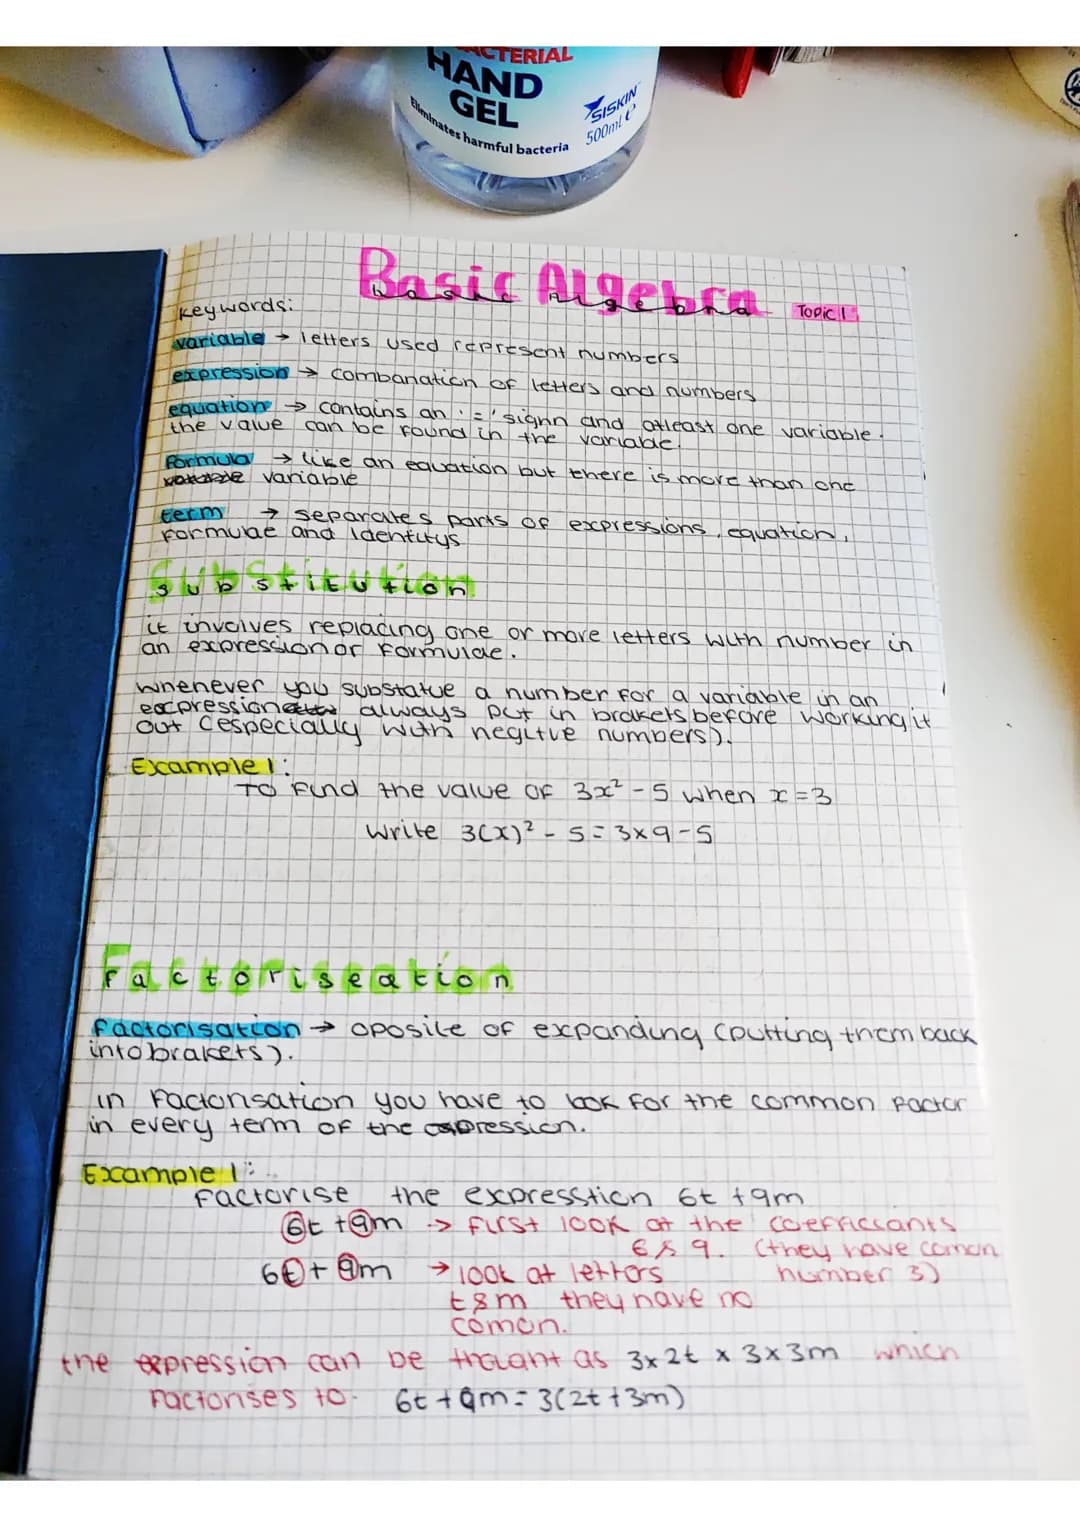 ACTERIAL
HAND
GEL
Eliminates harmful bacteria
SISKIN
500ml e
Basic Algebra Topic 1
keywords:
variable → letters used represent numbers
expression → combanation of letters and numbers
equation → contains an '=' signn and atleast one variable.
the value can be found in the variable.
formula → like an equation but there is more than one
variable
term → separates parts of expressions, equation,
formulae and identitys
Substitution
it involves replacing one or more letters with number in
an expression or formulae.
whenever you substatue a number for a variable in an
expression always put in brakets before working it
out (especially with negitve numbers).
Example 1:
To find the value of 3x² - 5 when x = 3
write 3(x)² - 5 = 3 x 9 - 5
Factoriseation
factorisation → oposite of expanding (putting them back
into brakets).
in factorisation you have to look for the common factor
in every term of the expression.
Example 1:
factorise the expresstion 6t + 9m
6t + 9m -> first look at the coefficcants
6 & 9. (they have comon
number 3)
6t + 9m → look at letters
t & m they have no
comon.
the expression can be thouht as 3 x 2t x 3 x 3m which
factorises to. 6t + 9m = 3(2t + 3m)